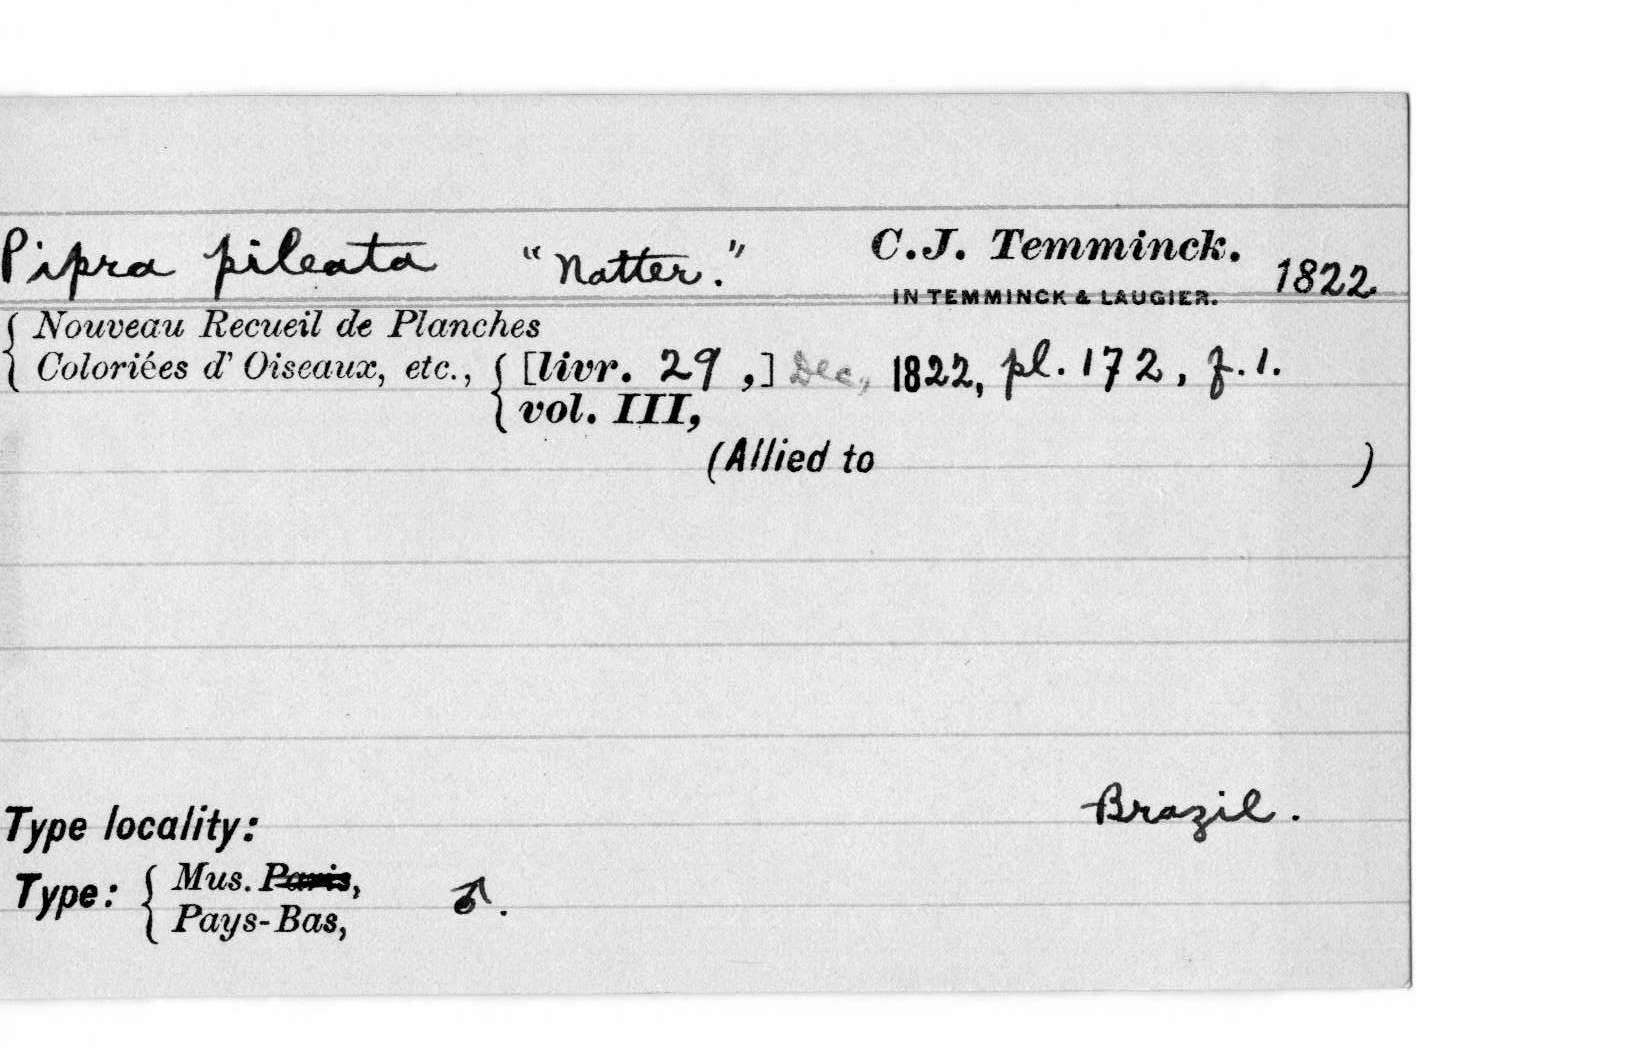 Pipra pileata "Natter." C.J. Temminck. 1822.
IN TEMMINCK & LAUGIER.
Nouveau Recueil de Planches
Coloriées d' Oiseaux, etc., [livr. 29,] Dec, 1822, pl. 172, f. 1.
vol. III,
(Allied to )
Type locality: Brazil.
Type: Mus. Paris, ♂.
Pays-Bas,